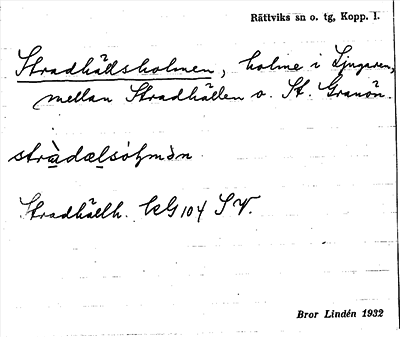 Rättviks sn o. tg, Kopp. l.
Stradhällsholmen, holme i Ljugaren,
mellan Stradhällen o. St. Granön.
stràdælsòḷmən
Stradhällh. kG 104 SV.
Bror Lindén 1932